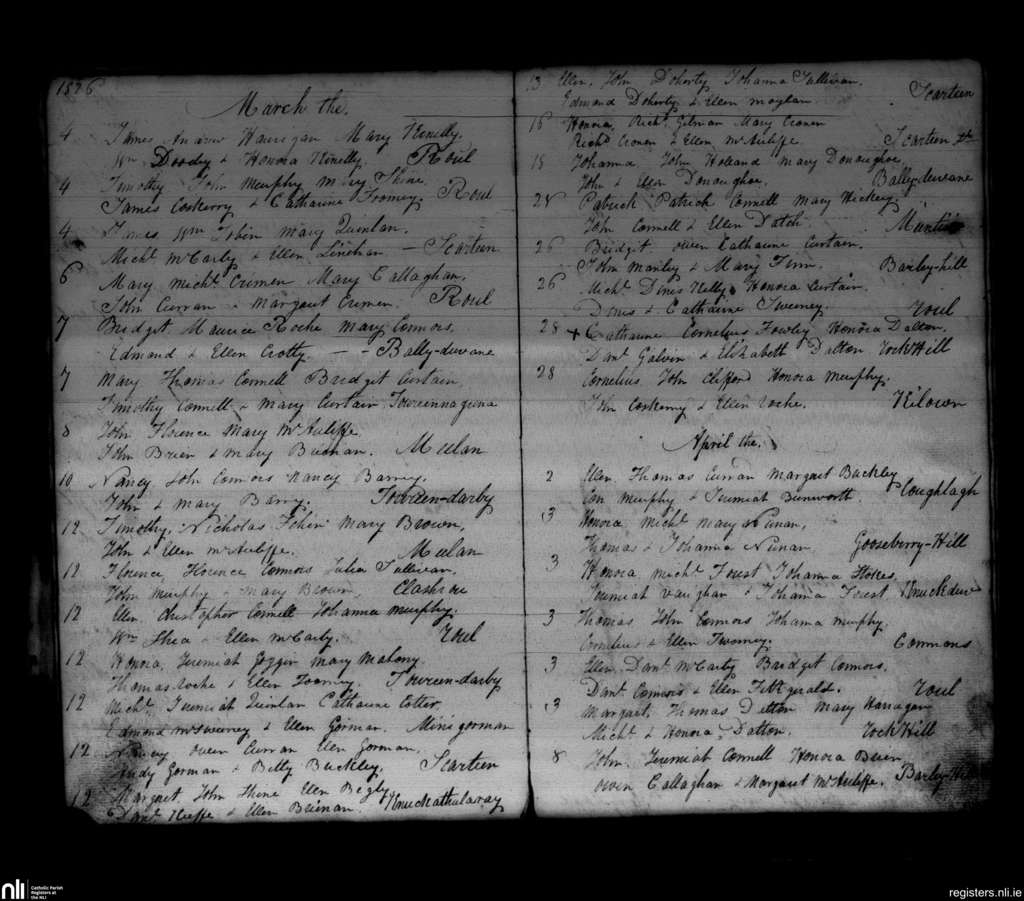 1826
March the.
4 James Hanigan Mary Kinelly.
Wm Doody & Honora Kinelly. Roul
4 Timothy John Murphy Mary Shine
James Coskerry & Catharine Twomey. Roul
4 James Wm Tobin Mary Quinlan.
Michl McCarty & Ellen Linehan — Scarteen
6 Mary Michl Crimen Mary Callaghan.
John Curran & Margaret Crimen. Roul
7 Bridget Maurice Roche Mary Connors.
Edmund & Ellen Crotty. — — Bally-duvane
7 Mary Thomas Connell Bridget Curtain.
Timothy Connell & Mary Curtain
8 John Florence Mary McAuliffe
John Brien & Mary Meelan
10 Nancy John Connors Nancy Barry.
John & Mary Barry. Towreen-darby
12 Timothy, Nicholas Mary Brown,
John & Ellen McAuliffe. Meelan
12 Florence, Florence Connors Julia Sullivan.
John Murphy & Mary Brown,
12 Ellen Christopher Connell Johanna Murphy.
Wm Shea & Ellen McCarty. Roul
12 Honora, Jeremiah Goggin Mary Mahony.
Thomas Roche & Ellen Towreen-darby
12 Michl Jeremiah Quinlan Catharine Cotter,
Edmond McSweeney & Ellen Gorman. Minigorman
12 Nancy Owen Curran Ellen Gorman.
Andy Gorman & Betty Buckley, Scarteen
12 Margaret John Shine Ellen Begly
Danl Keeffe & Ellen
13 Ellen, John Doherty Johanna Sullivan.
Edmond Doherty & Ellen Moylan Scarteen
16 Honora, Richd Gilman Mary Cronen
Richd Cronen & Ellen McAuliffe Scarteen
18 Johanna John Holland Mary Donaughoe,
John & Ellen Donaughoe. Bally-duvane
25 Patrick Patrick Connell Mary Hickey.
John Connell & Ellen
26 Bridget Owen Catharine Curtain.
John & Mary Finn. Barley-hill
26 Michl Denis Kelly Honora Curtain.
Denis & Catharine Sweeney. Roul
28 + Catharine Cornelius Fowley Honora Dalton.
Danl Galvin & Elizabeth Dalton Rock Hill
28 Cornelius John Clifford Honora Murphy.
John Coskerry & Ellen Roche. Kilown
April the.
2 Ellen Thomas Curran Margaret Buckley
Con Murphy & Jeremiah Bunworth. Coughlagh
3 Honora Michl Mary Nunan,
Thomas & Johanna Nunan Gooseberry-Hill
3 Honora Michl Forest Johanna Stokes
Jeremiah Vaughan & Johanna Forest
3 Thomas John Connors Johanna Murphy.
Cornelius & Ellen Twomey. Commons
3 Ellen Danl McCarty Bridget Connors.
Danl Connors & Ellen Fitzgerald. Roul
3 Margaret Thomas Dalton Mary Hanagan
Michl & Honora Dalton. Rock Hill
8 John Jeremiah Connell Honora
Owen Callaghan & Margaret McAuliffe. Barley-Hill
nli
Catholic Parish
Registers at
the NLI
registers.nli.ie